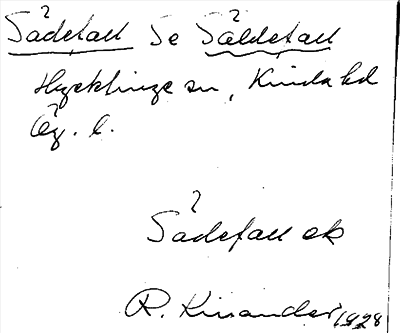 Sådefall Se Såldefall
Hycklinge sn, Kinda hd
Ög. l.
Sådefall ob
R. Kinander 1928